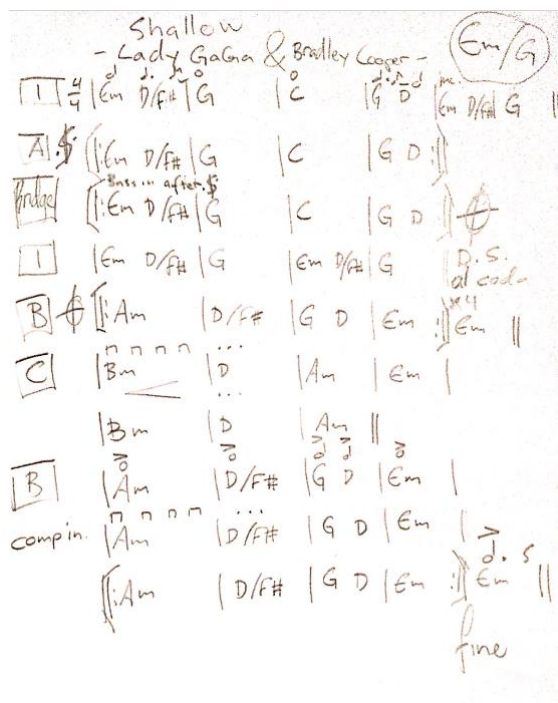 Shallow
- Lady GaGa & Bradley Cooper - Em/G
I 4/4 | Em D/F# | G | C | G D | Em D/F# | G ||
A 𝄋 ||: Em D/F# | G | C | G D :||
Bass in after 𝄋
Bridge ||: Em D/F# | G | C | G D :|| 𝄌
I | Em D/F# | G | Em D/F# | G | D.S.
al coda
B 𝄌 ||: Am | D/F# | G D | Em :|| x4 Em ||
C | Bm | D | Am | Em |
| Bm | D | Am ||
B | Am | D/F# | G D | Em |
comp in. | Am | D/F# | G D | Em |
||: Am | D/F# | G D | Em :|| Em ||
fine